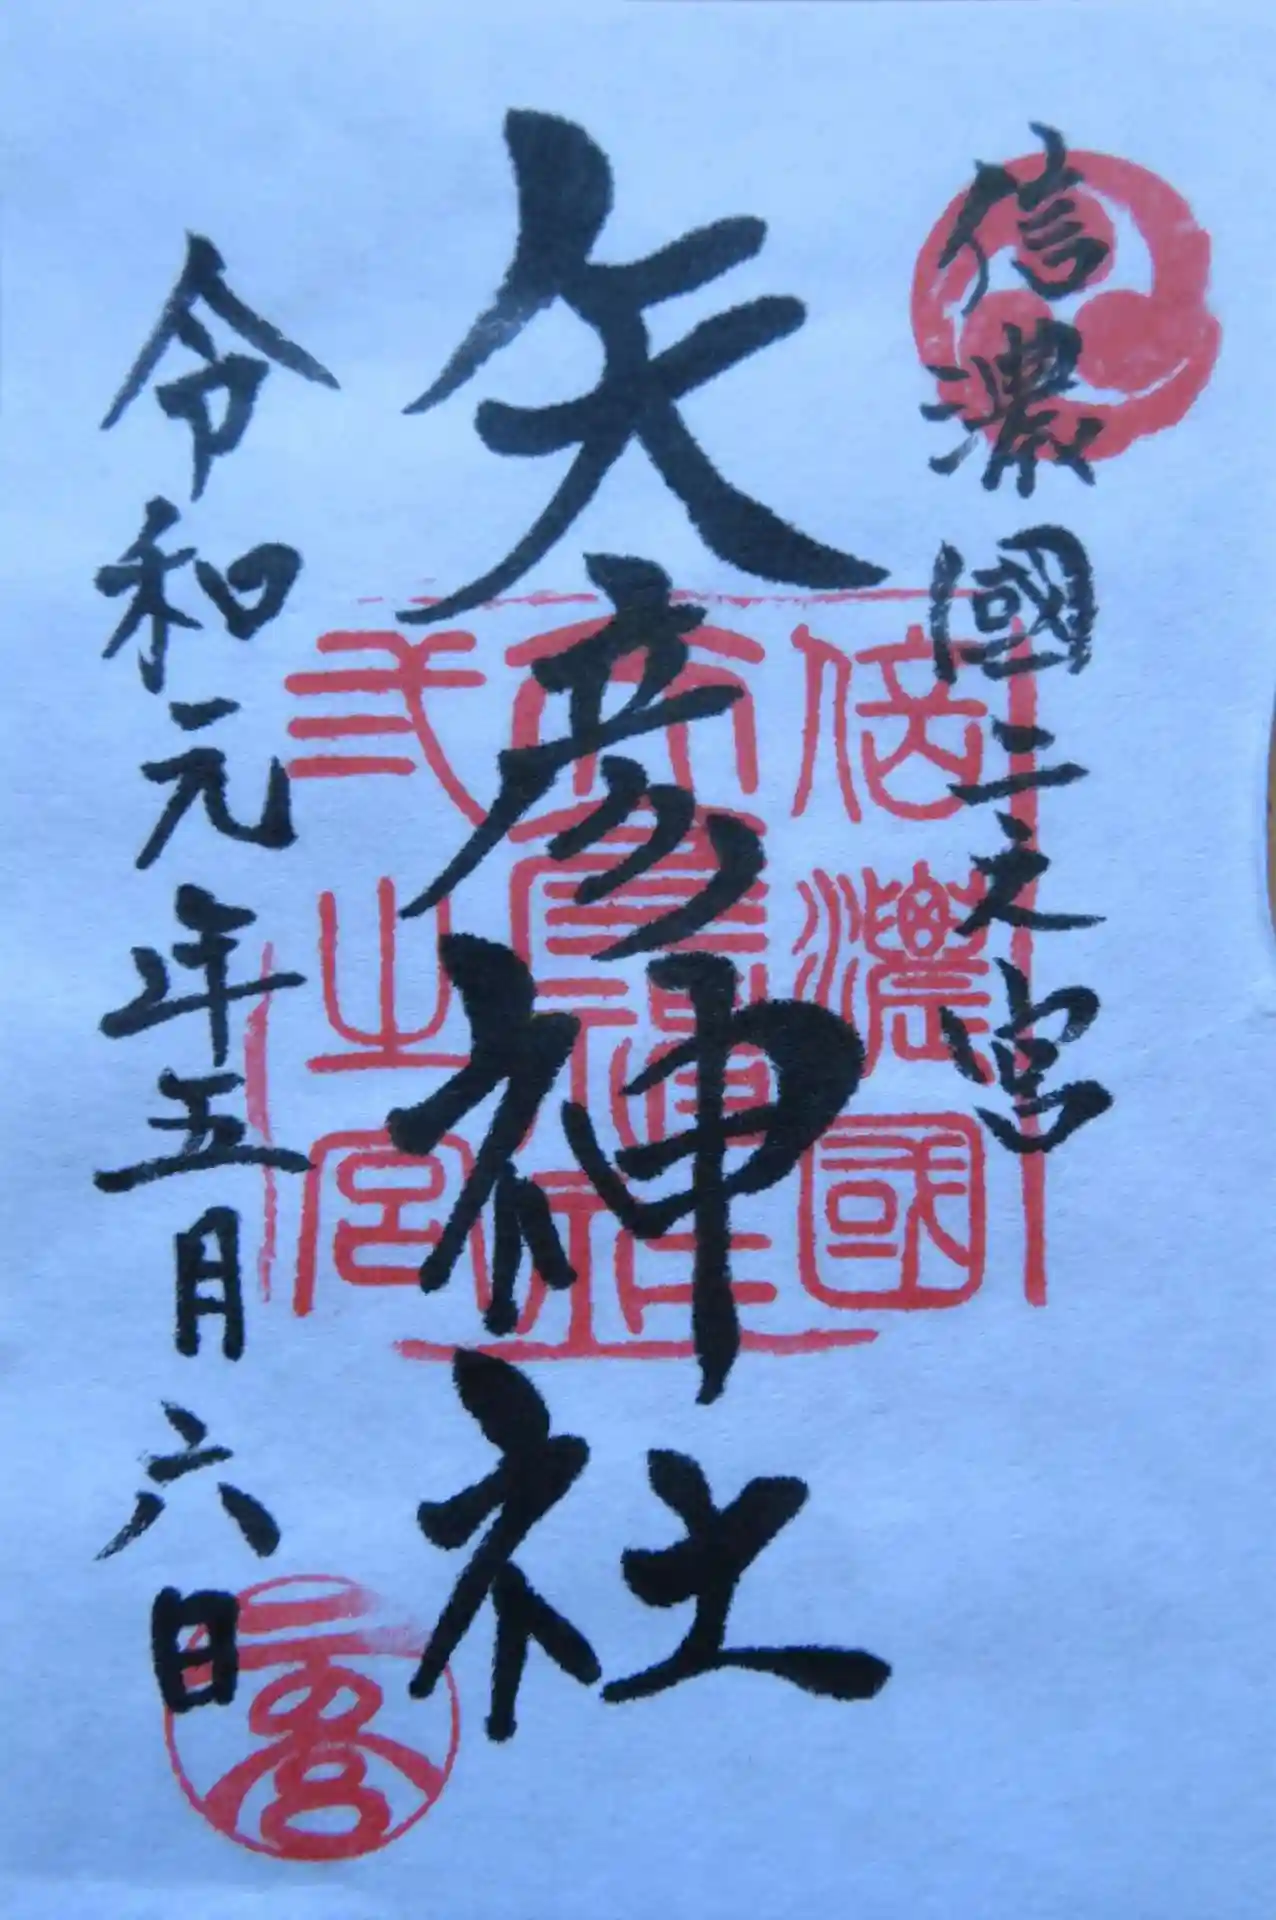 信濃國二之宮
矢彦神社
令和元年五月六日
信濃國
矢彦神社
弐之宮